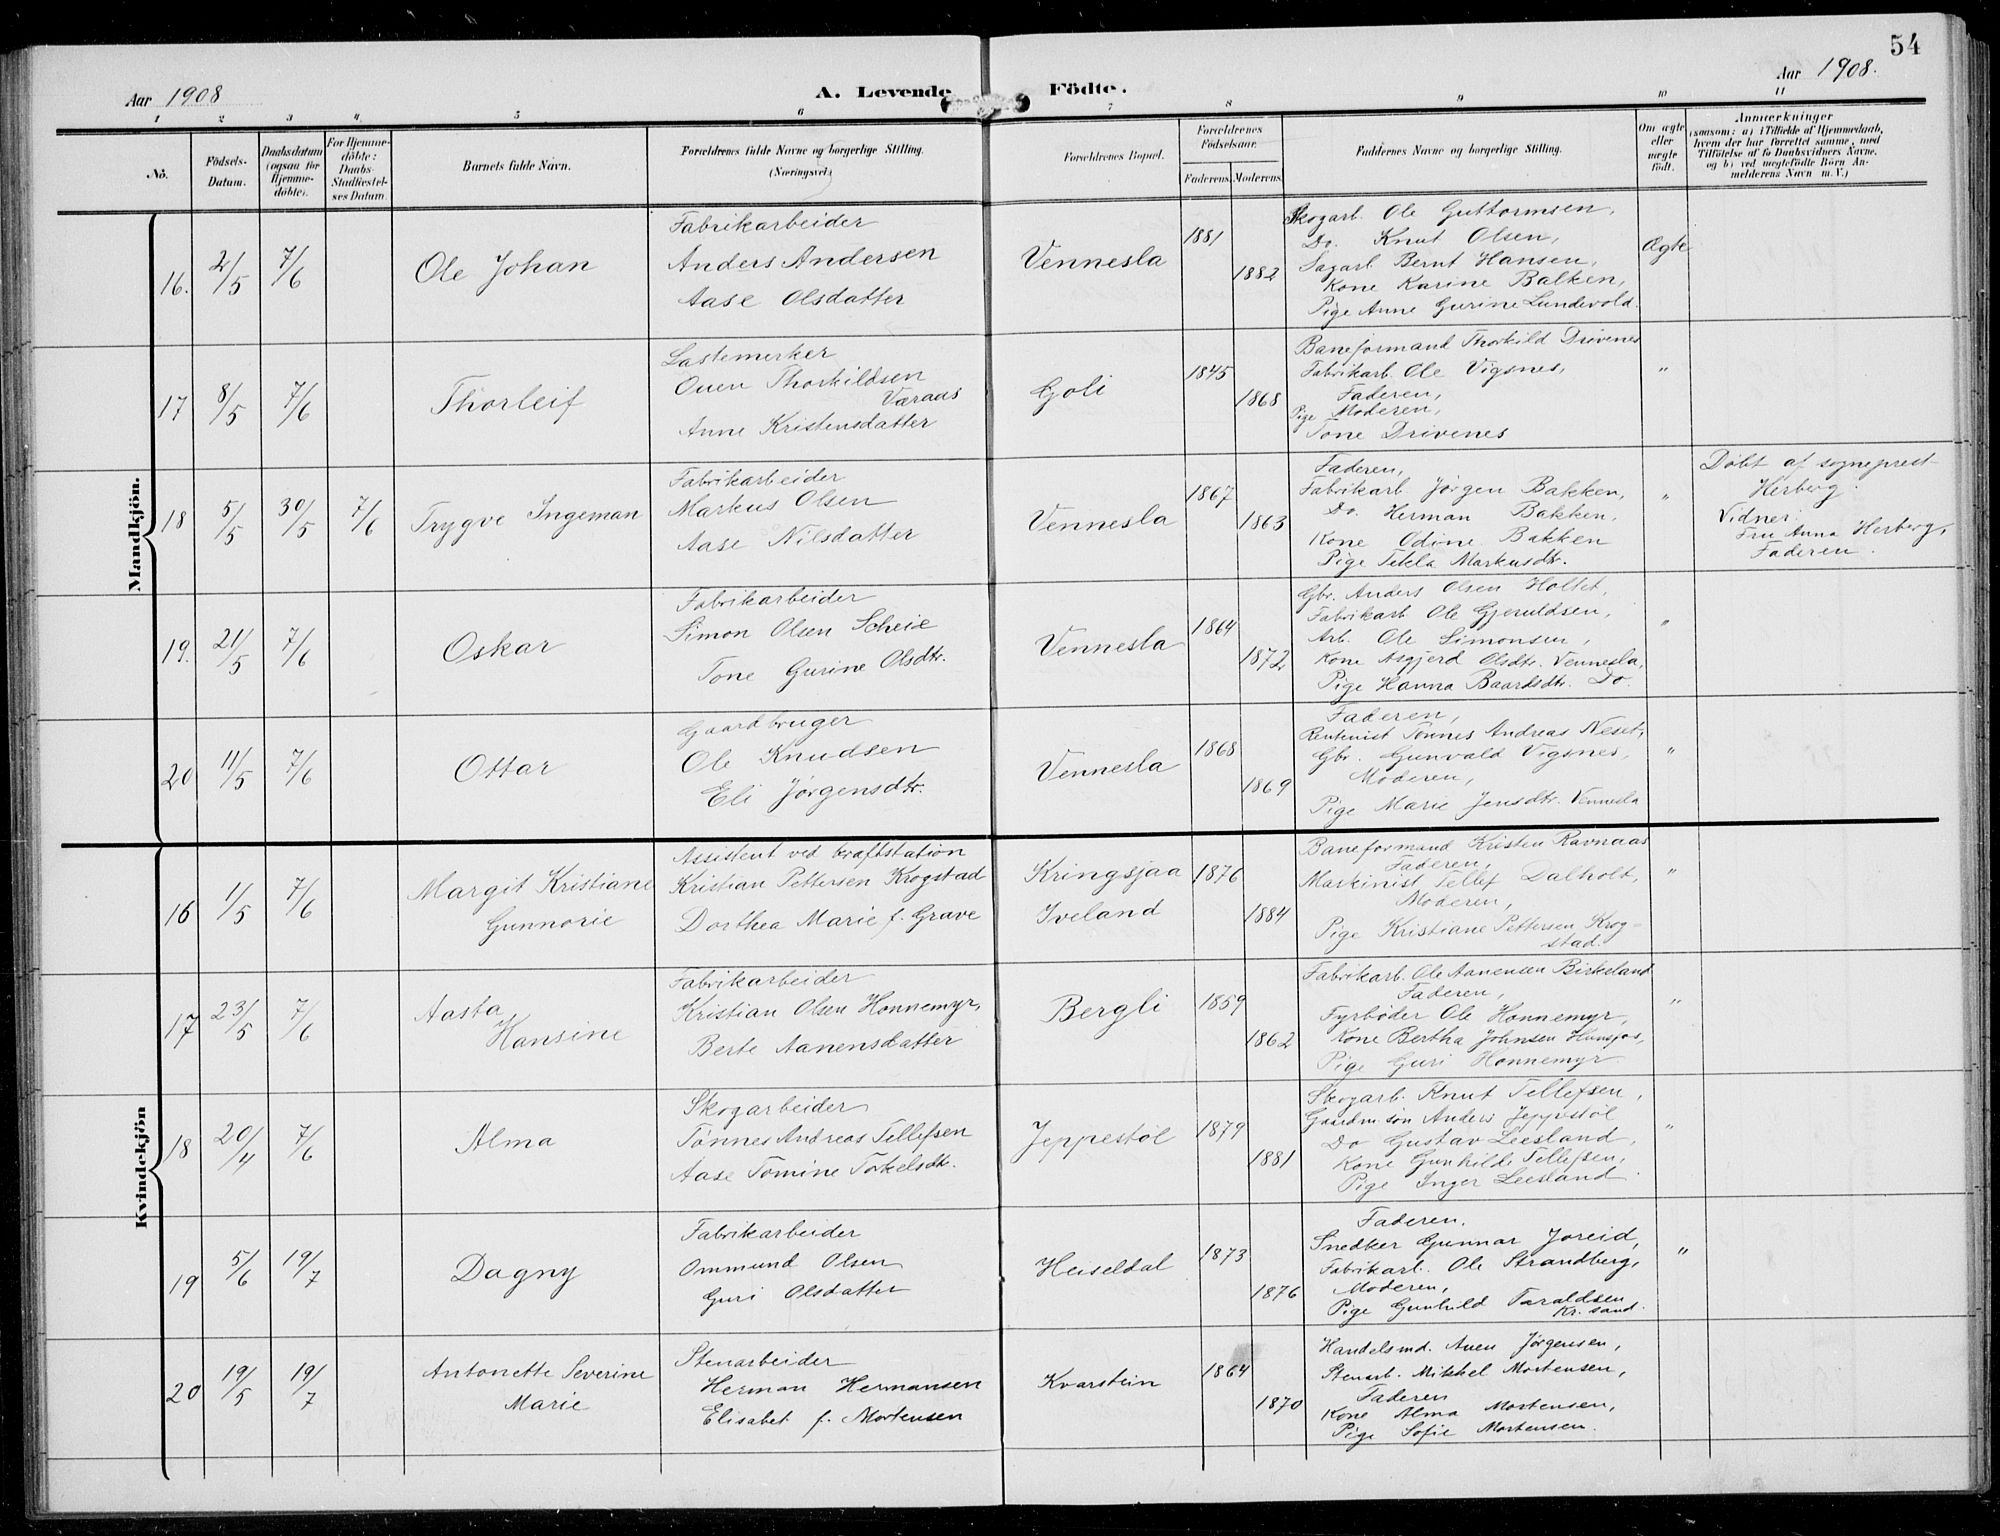 54
Aar 1908
A. Levende Födte.
Aar 1908.
1 2 3 4 5 6 7 8 9 10 11
No.
Födsels-Datum.
Daabsdatum (ogsaa for Hjemme-döbte).
For Hjemme-döbte: Daabs-Stadfæstel-ses Datum.
Barnets fulde Navn.
Forældrenes fulde Navne og borgerlige Stilling. (Næringsvei.)
Forældrenes Bopæl.
Forældrenes Födselsaar.
Faderens. Moderens.
Faddernes Navne og borgerlige Stilling.
Om ægte eller uægte födt.
Anmærkninger
(saasom: a) i Tilfælde af Hjemmedaab, hvem der har forrettet samme, med Tilföielse af to Daabsvidners Navne. og b) ved uægtefödte Börn An-melderens Navn m. V.)
Mandkjön.
16. 2/5 7/6
Ole Johan
Fabrikarbeider
Anders Andersen
Aase Olsdatter
Vennesla
1881
1882
Skogarb. Ole Guttormsen,
Do. Knut Olsen,
Sagarb. Bernt Hansen,
Kone Karine Balken,
Pige Anne Gurine Lundevold.
Ægte
17 8/5 7/6
Thorleif
Lastemerker
Ouen Thorkildsen
Væraas
Anne Kristensdatter
Goli
1845
1868
Baneformand Thorkild Drivenes
Fabrikarb. Ole Vigsnes,
Faderen,
Moderen,
Pige
Tone Drivenes
"
18 5/5 30/5 7/6
Trygve Ingeman
Fabrikarbeider
Markus Olsen
Aase Nilsdatter
Vennesla
1867
1863
Faderen,
Fabrikarb Jørgen Bakken,
Do. Herman Bakken,
Kone Odine Bakken
Pige Tekla Markusdtr.
"
Døbt af sogneprest
Herberg.
Vidner:
Fru Anna Herberg,
Faderen.
19. 21/5 7/6
Oskar
Fabrikarbeider
Simon Olsen Scheie
Tone Gurine Olsdtr.
Vennesla
1864
1872
Gbr. Anders Olsen Holtet,
Fabrikarb Ole Gjeruldsen,
Arb. Ole Simonsen,
Kone Asgjerd Olsdtr. Vennesla,
Pige Hanna Baardsdtr. Do.
"
20 11/5 7/6
Ottar
Gaardbruger
Ole Knudsen
Eli Jørgensdtr.
Vennesla
1868
1869
Faderen,
Rentenist Tønnes Andreas Neset,
Gbr. Gunvald Vigsnes,
Moderen,
Pige Marie Jensdtr. Vennesla
"
Kvindekjön
16 1/5 7/6
Margit Kristiane
Gunnorie
Assistent ved kraftstation
Kristian Pettersen Krogstad
Dorthea Marie f. Grave
Kringsjaa
Iveland
1876
1884
Baneformand Kristen Ravnaas
Faderen,
Maskinist Tellef Dalholt,
Moderen,
Pige Kristiane Pettersen Krog-
stad.
"
17 23/5 7/6
Aasta
Hansine
Fabrikarbeider
Kristian Olsen Honnemyr,
Berte Aanensdatter
Bergli
1859
1862
Fabrikarb. Ole Aanensen Birkeland
Faderen,
Fyrbøder Ole Honnemyr,
Kone Bertha Johnsen Hunsfos,
Pige Guri Honnemyr
"
18 20/4 7/6
Alma
Skogarbeider
Tønnes Andreas Tellefsen
Aase Tomine Torkelsdtr.
Jeppestøl
1879
1881
Skogarb. Knut Tellefsen,
Gaardm. søn Anders Jeppstøl
Do Gustav Leesland,
Kone Gunhilde Tellefsen,
Pige Inger Leesland
"
19 5/6 19/7
Dagny
Fabrikarbeider
Ommund Olsen
Guri Olsdatter
Heiseldal
1873
1876
Faderen.
Snedker Gunnar Joreid,
Fabrikarb. Ole Strandberg,
Moderen,
Pige Gunhild Taraldsen
Kr. sand.
"
20 19/5 19/7
Antonette Severine
Marie
Stenarbeider
Herman Hermansen
Elisabet f. Mortensen
Kvarstein
1864
1870
Handelsmd. Auen Jørgensen,
Stenarb. Mikkel Mortensen,
Faderen
Kone Alma Mortensen,
Pige Sofie Mortensen.